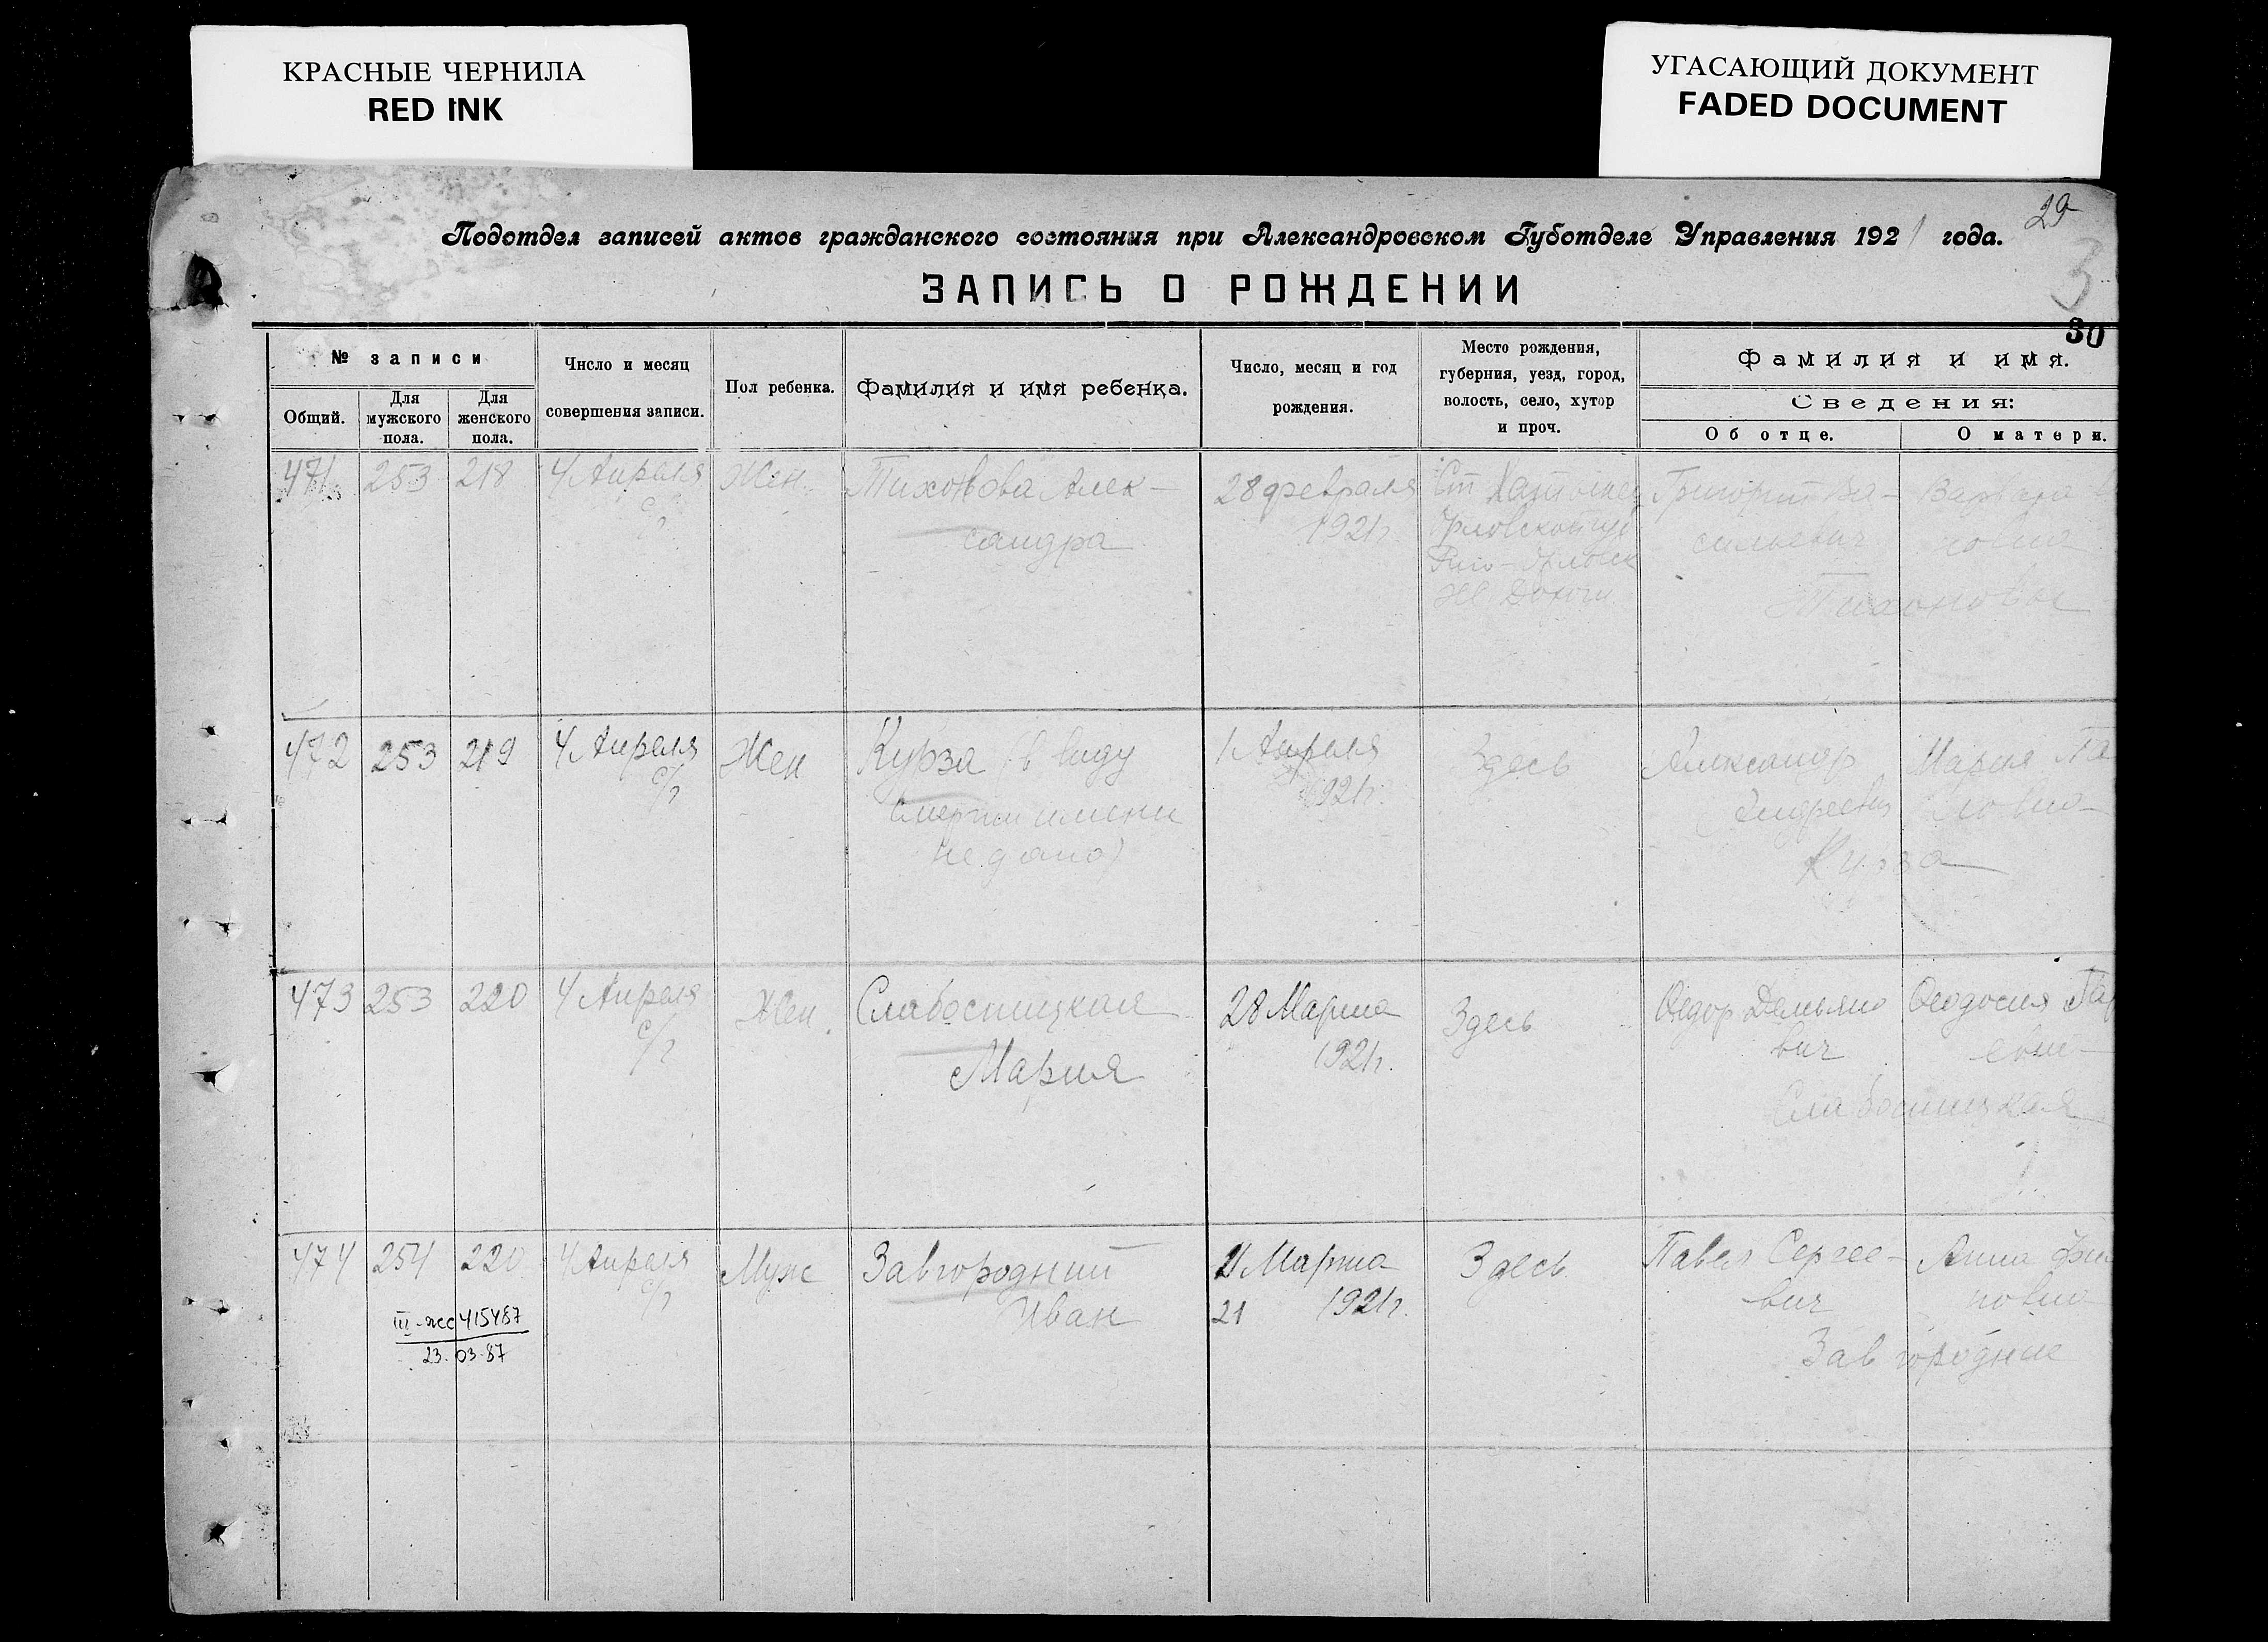 КРАСНЫЕ ЧЕРНИЛА
RED INK
УГАСАЮЩИЙ ДОКУМЕНТ
FADED DOCUMENT
29
Подотдел записей актов гражданского состояния при Александровском Губотделе Управления 1921 года.
3
ЗАПИСЬ О РОЖДЕНИИ
30
№ записи
Общий.
Для мужского пола.
Для женского пола.
Число и месяц совершения записи.
Пол ребенка.
Фамилия и имя ребенка.
Число, месяц и год рождения.
Место рождения, губерния, уезд, город, волость, село, хутор и проч.
Фамилия и имя.
Сведения:
Об отце.
О матери.
471 253 218 4 Апреля Жен. Тихонова Алек- 28 февраля Ст Григорий Ва- Варвара
с/г сандра 1921г. сильевич
Тихоновы
472 253 219 4 Апреля Жен Курза (в виду 1 Апреля Здесь Александр Мария Па
с/г смерти имени 1921г. Андреевич вловна
не дано) Курза
473 253 220 4 Апреля Жен. Слабоспицкая 28 Марта Здесь Федор Демьяно Феодосия
с/г Мария 1921г. вич
Слабоспицкая
474 254 220 4 Апреля Муж Завгородний 21 Марта Здесь Павел Сергее- Анна
с/г Иван 21 1921г. вич повна
Завгородние
415487
23.03.87